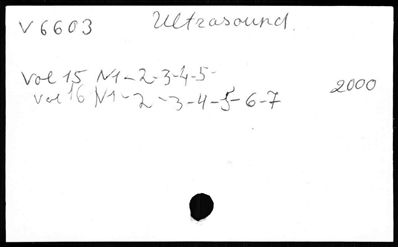 V6603 Ultrasound.
Vol 15 N1-2-3-4-5-
Vol 16 N1-2-3-4-5-6-7 2000